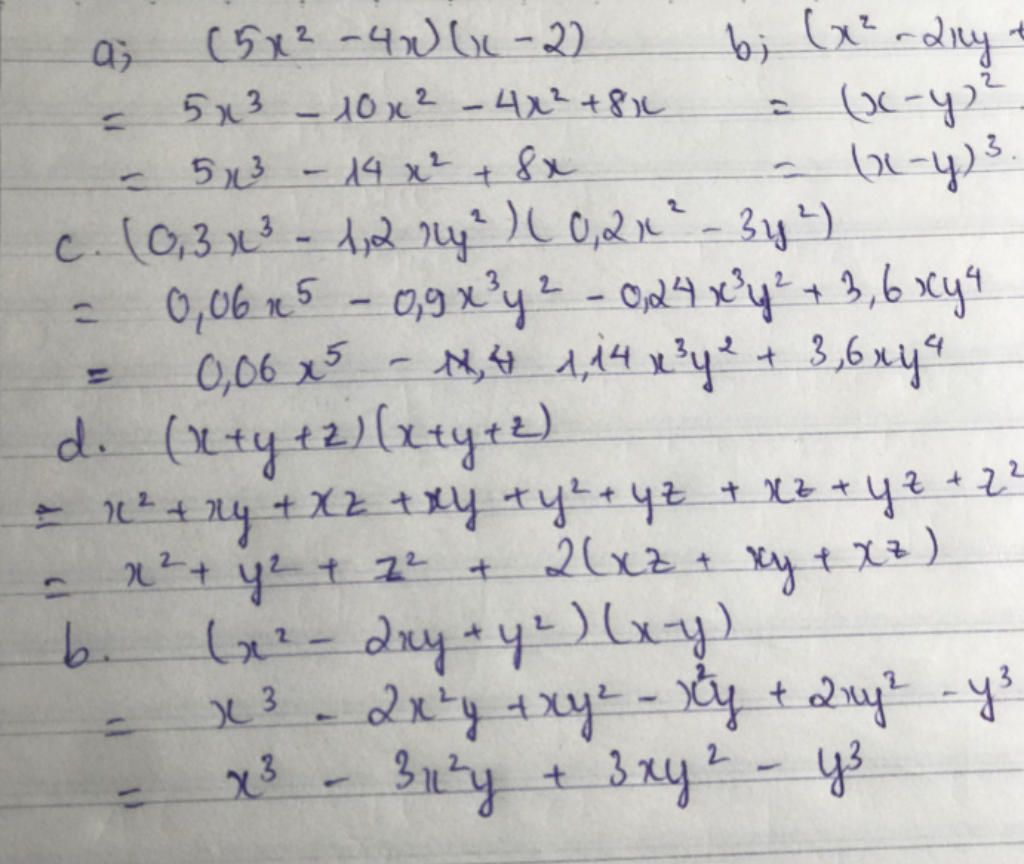 a; (5x² - 4x)(x - 2) b; (x² - 2xy +
= 5x³ - 10x² - 4x² + 8x = (x - y)²
= 5x³ - 14x² + 8x = (x - y)³.
c. (0,3x³ - 1,2xy²)(0,2x² - 3y²)
= 0,06x⁵ - 0,9x³y² - 0,24x³y² + 3,6xy⁴
= 0,06x⁵ - 1,14x³y² + 3,6xy⁴
d. (x+y+z)(x+y+z)
= x² + xy + xz + xy + y² + yz + xz + yz + z²
= x² + y² + z² + 2(xz + xy + xz)
b. (x² - 2xy + y²)(x-y)
= x³ - 2x²y + xy² - x²y + 2xy² - y³
= x³ - 3x²y + 3xy² - y³